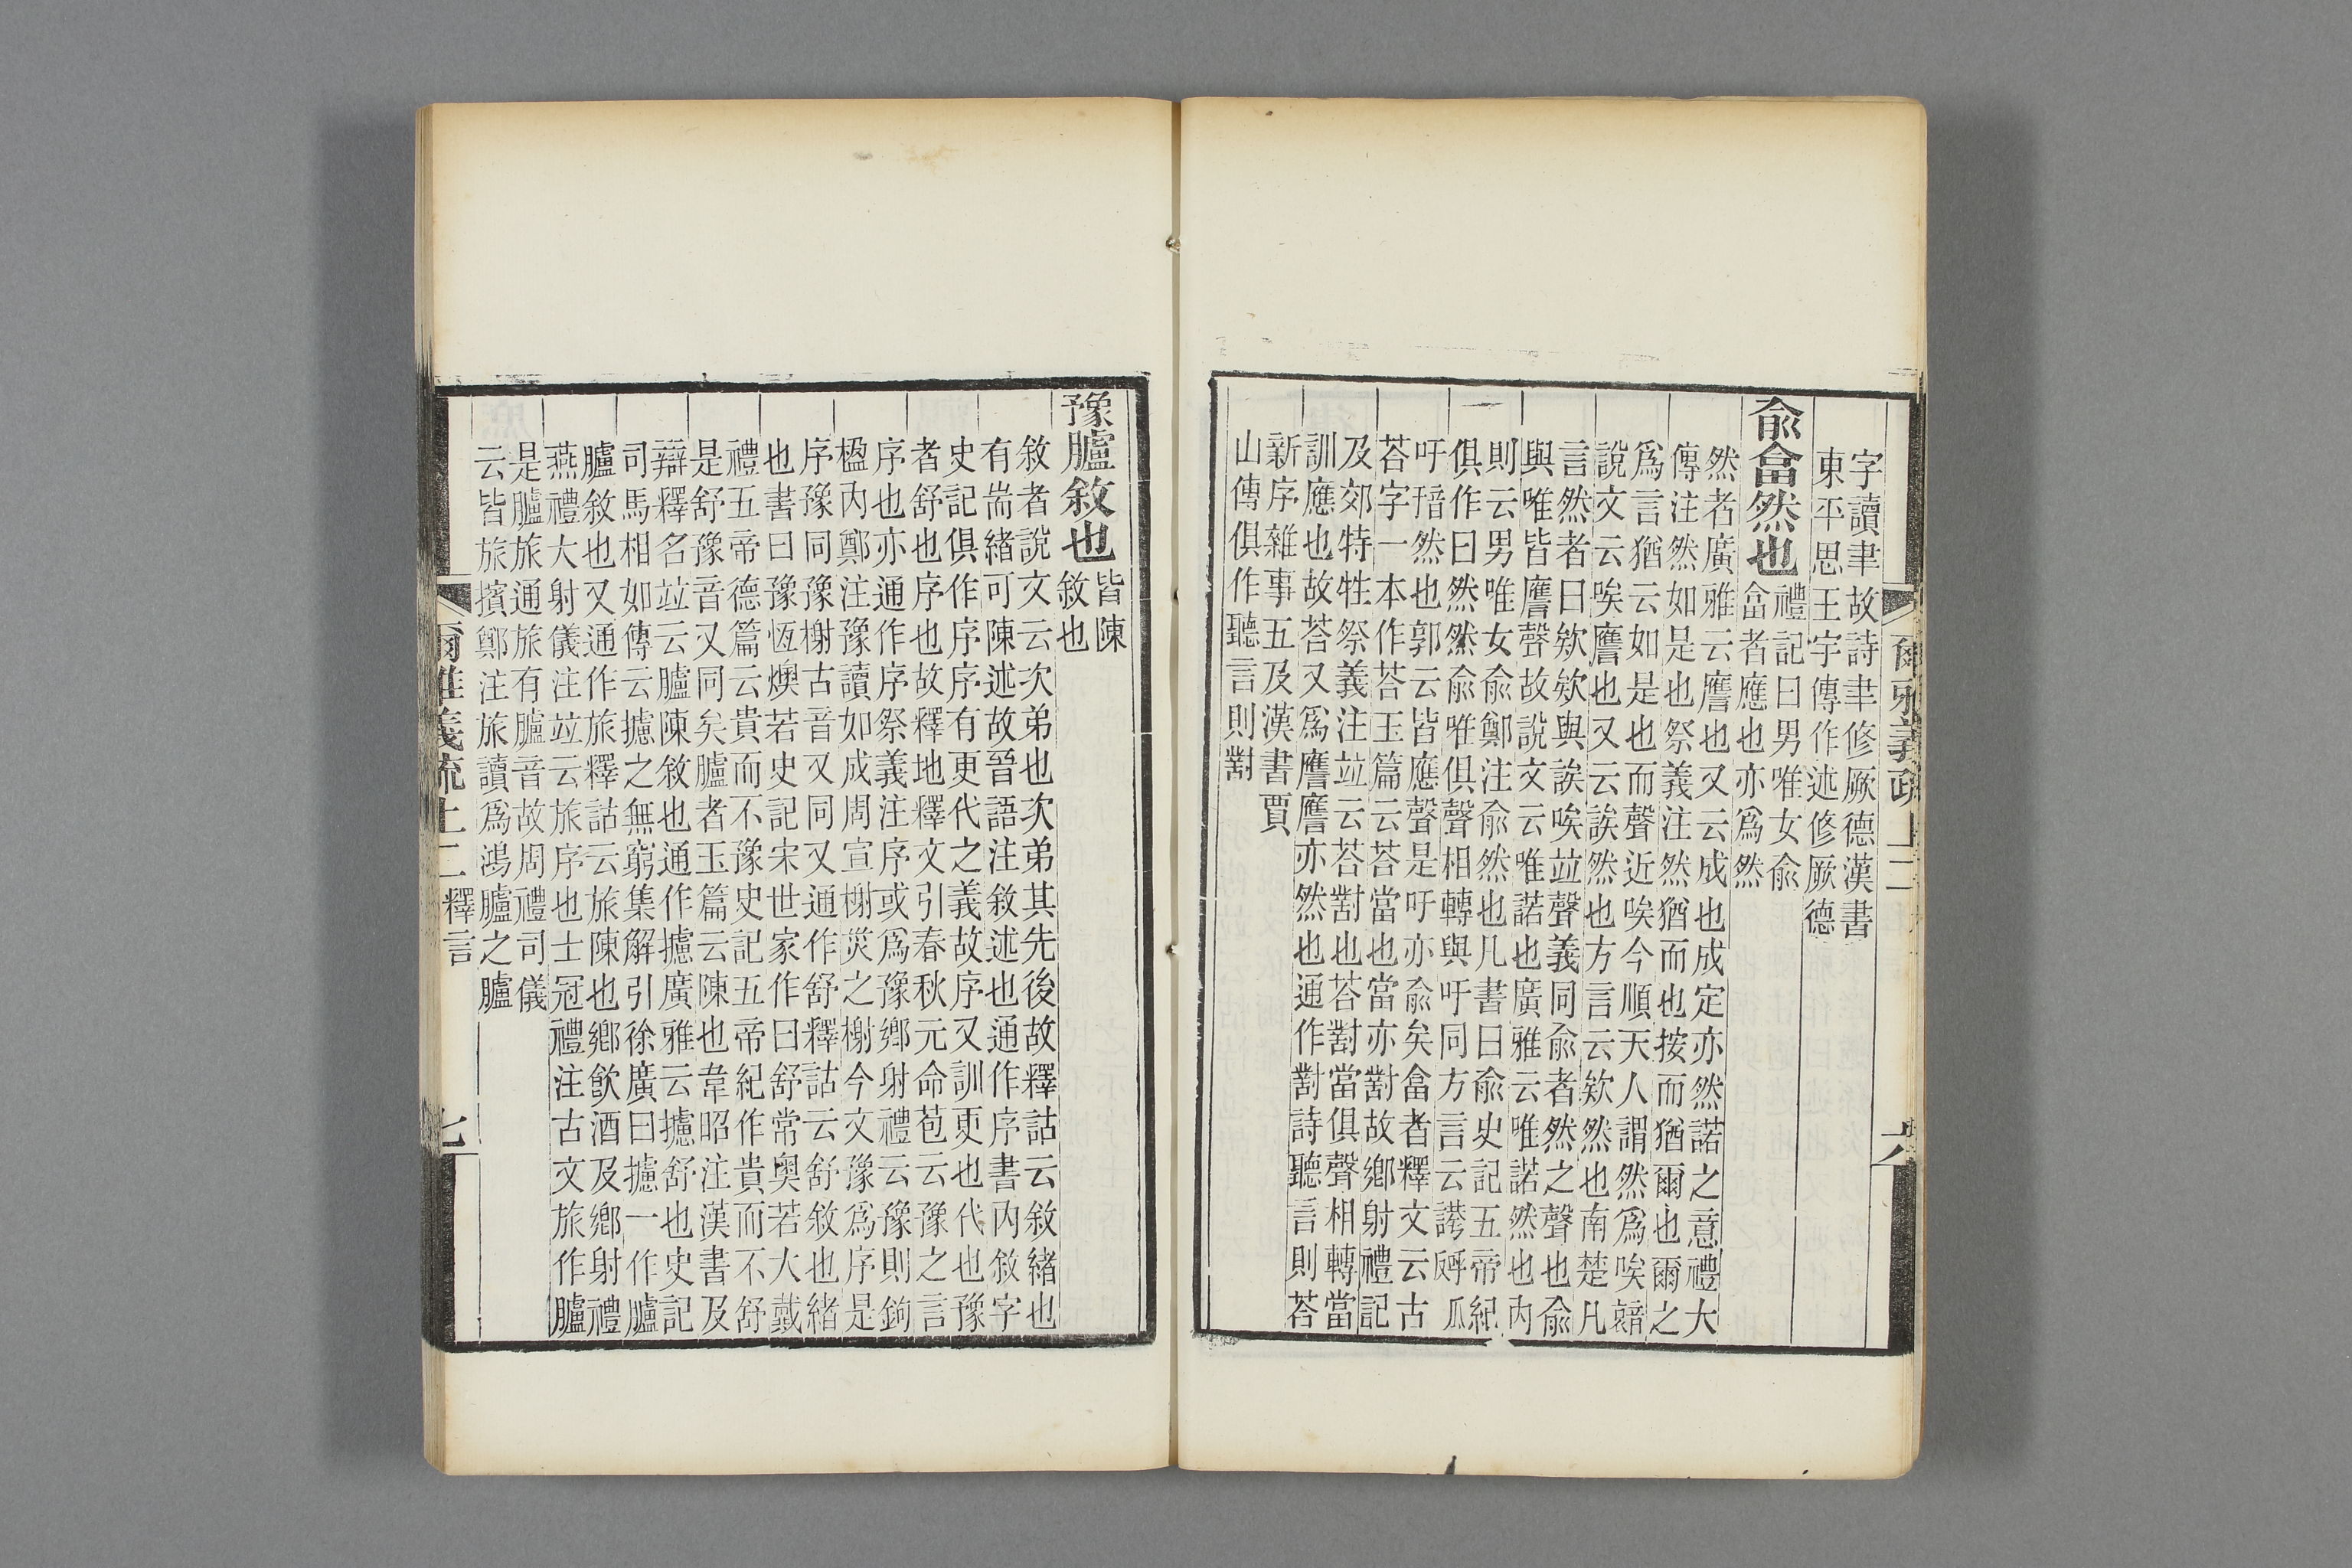 爾雅義疏上二
六
字讀聿故詩聿修厥德漢書
東平思王宇傳作述修厥德
兪畣然也
禮記曰男唯女兪
畣者應也亦爲然
然者廣雅云譍也又云成也成定亦然諾之意禮大
傳注然如是也祭義注然猶而也按而猶爾也爾之
爲言猶云如是也而聲近唉今順天人謂然爲唉
說文云唉譍也又云誒然也方言云欸然也南楚凡
言然者曰欸欸與誒唉竝聲義同兪者然之聲也兪
與唯皆譍聲故說文云唯諾也廣雅云唯諾然也內
則云男唯女兪鄭注兪然也凡書曰兪史記五帝紀
俱作曰然然兪唯俱聲相轉與吁同方言云䛾
吁㻸然也郭云皆應聲是吁亦兪矣畣者釋文云古
荅字一本作荅玉篇云荅當也當亦對故鄉射禮記
及郊特牲祭義注竝云荅對也荅對當俱聲相轉當
訓應也故荅又爲譍譍亦然也通作對詩聽言則荅
新序雜事五及漢書賈
山傳俱作聽言則對
豫臚敘也
皆陳
敘也
敘者說文云次弟也次弟其先後故釋詁云敘緒也
有耑緒可陳述故晉語注敘述也通作序書內敘字
史記俱作序序有更代之義故序又訓更也代也豫
者舒也序也故釋地釋文引春秋元命苞云豫之言
序也亦通作序祭義注序或爲豫鄉射禮云豫則鉤
楹內鄭注豫讀如成周宣榭災之榭今文豫爲序是
序豫同豫榭古音又同又通作舒釋詁云舒敘也緒
也書曰豫恆燠若史記宋世家作曰舒常奧若大戴
禮五帝德篇云貴而不豫史記五帝紀作貴而不舒
是舒豫音又同矣臚者玉篇云陳也韋昭注漢書及
辯釋名竝云臚陳敘也通作攄廣雅云攄舒也史記
司馬相如傳云攄之無窮集解引徐廣曰攄一作臚
臚敘也又通作旅釋詁云旅陳也鄉飮酒及鄉射禮
燕禮大射儀注竝云旅序也士冠禮注古文旅作臚
是臚旅通旅有臚音故周禮司儀
云皆旅擯鄭注旅讀爲鴻臚之臚
爾雅義疏上二 釋言
七